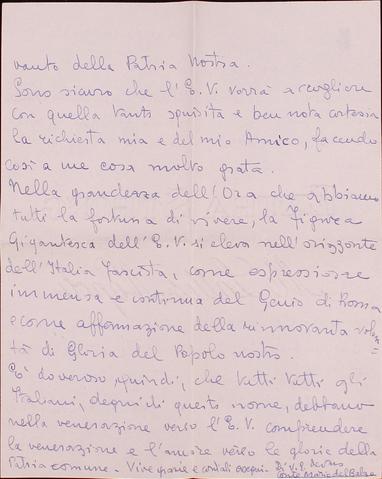 vanto della Patria Nostra.
Sono sicuro che l'E.V. vorrà accogliere
con quella tanto squisita e ben nota cortesia
la richiesta mia e del mio Amico, facendo
così a me cosa molto grata.
Nella grandezza dell'Ora che abbiamo
tutti la fortuna di vivere, la Figura
Gigantesca dell'E.V. si eleva nell'orizzonte
dell'Italia Fascista, come espressione
immensa e continua del Genio di Roma
e come affermazione della rinnovata volon=
tà di Gloria del Popolo nostro.
È doveroso, quindi, che tutti tutti gli
Italiani, degni di questo nome, debbano
nella venerazione verso l'E.V. comprendere
la venerazione e l'amore verso le glorie della
Patria comune. - Vive grazie e cordiali ossequi. Di V.E. devmo
Conte Mario del Balzo